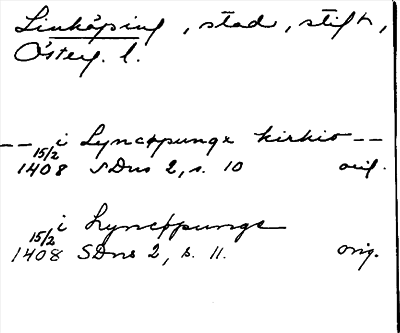 Linköping, stad, stift,
Österg. l.
-- i Lyncøpungx kirkio --
15/2 1408 SDns 2, s. 10 orig.
i Lyncøpunge
15/2 1408 SDns 2, s. 11. orig.